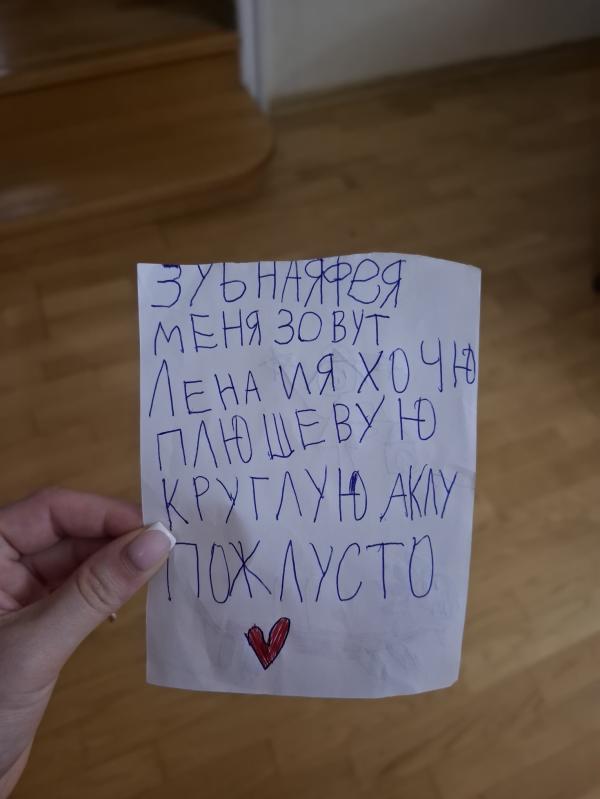 ЗУБНАЯФЕЯ
МЕНЯ ЗОВУТ
ЛЕНА ИЯ ХОЧЮ
ПЛЮШЕВУЮ
КРУГЛУЮ АКЛУ
ПОЖЛУСТО